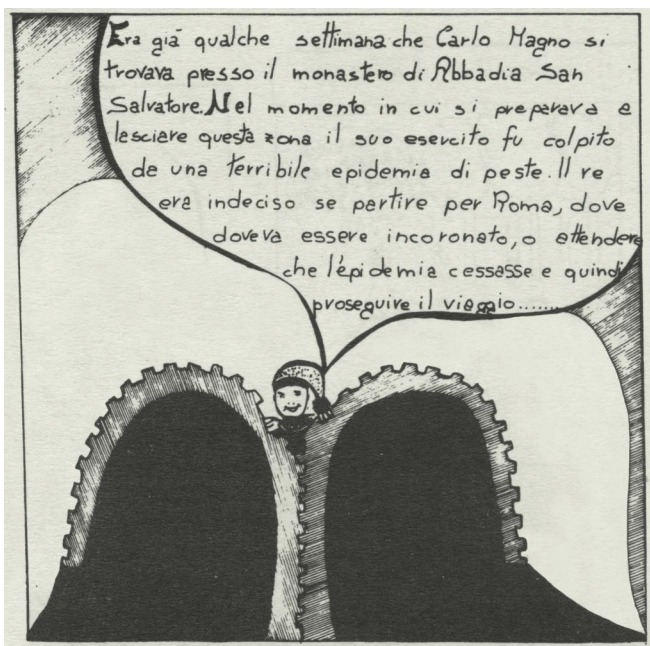 Era già qualche settimana che Carlo Magno si
trovava presso il monastero di Abbadia San
Salvatore. Nel momento in cui si preparava a
lasciare questa zona il suo esercito fu colpito
da una terribile epidemia di peste. Il re
era indeciso se partire per Roma, dove
doveva essere incoronato, o attendere
che l'epidemia cessasse e quindi
proseguire il viaggio.......